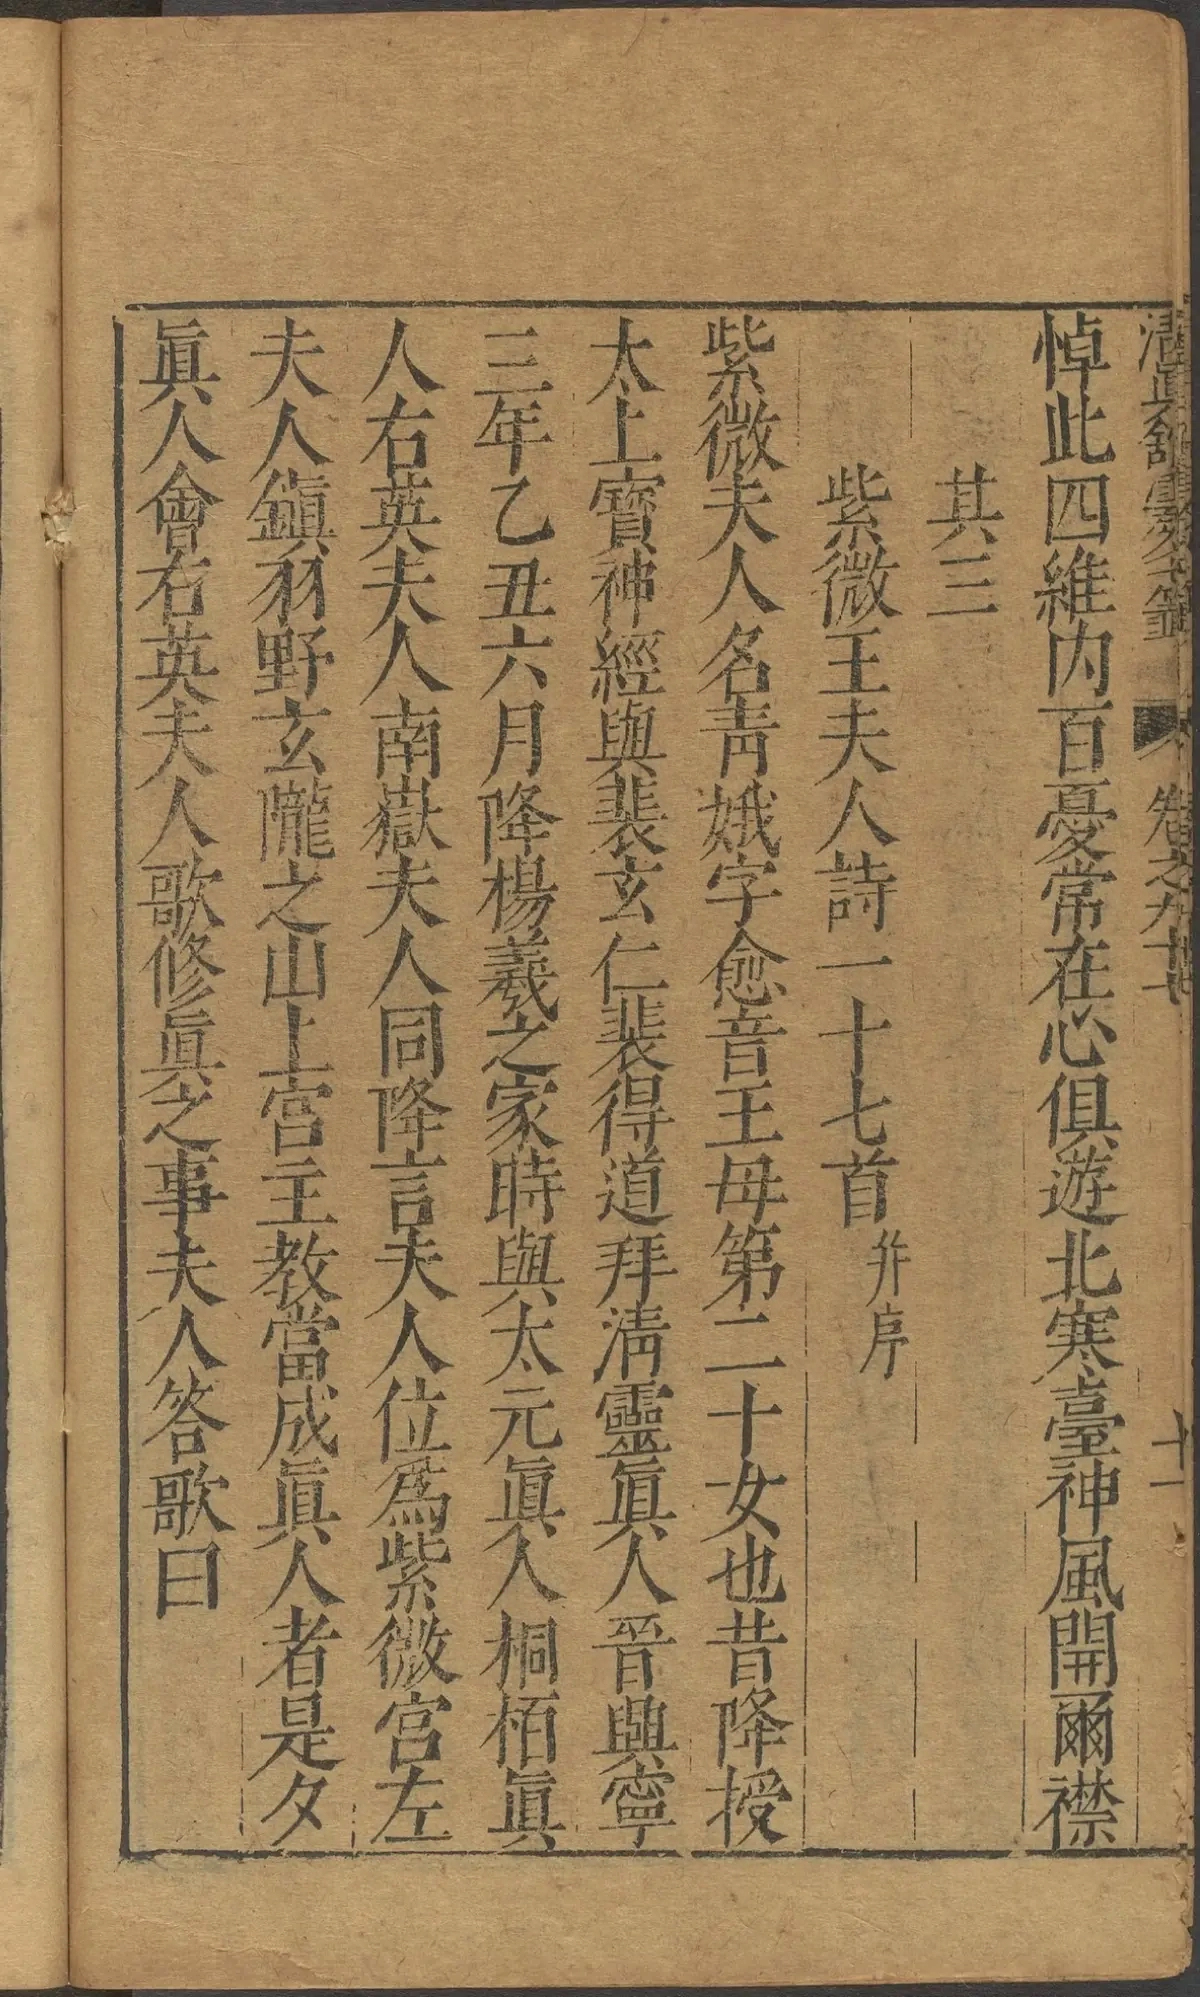 清眞館雲笈七籤 卷之九十七 十一
悼此四維内百憂常在心俱遊北寒臺神風開爾襟
其三
紫微王夫人詩一十七首并序
紫微夫人名靑娥字愈音王母第二十女也昔降授
太上寶神經與裴玄仁裴得道拜淸靈眞人晉興寧
三年乙丑六月降楊羲之家時與太元眞人桐栢眞
人右英夫人南嶽夫人同降言夫人位爲紫微宮左
夫人鎭羽野玄隴之山上宮主教當成眞人者是夕
眞人會右英夫人歌修眞之事夫人答歌曰